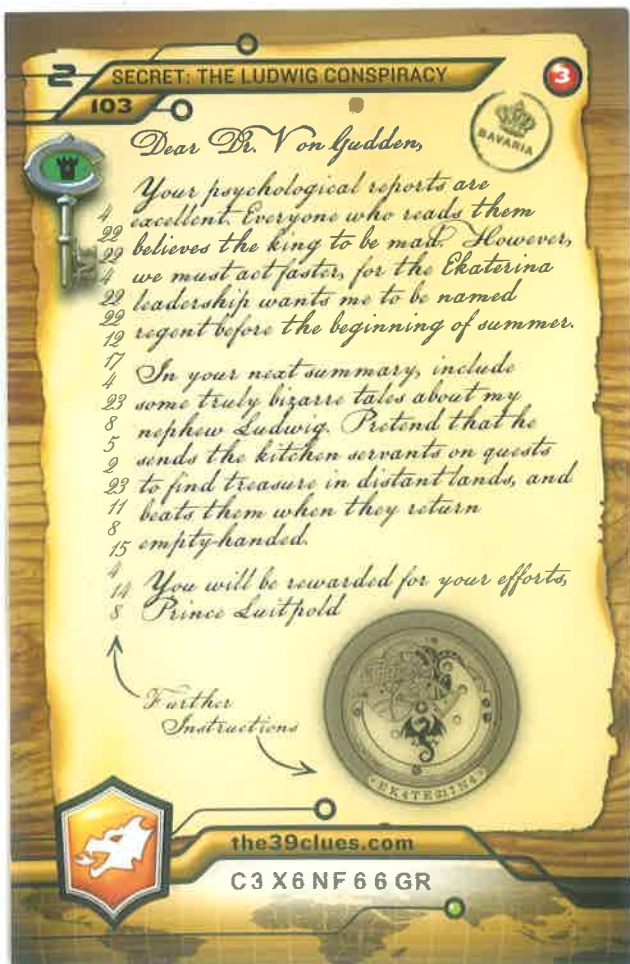 2 SECRET: THE LUDWIG CONSPIRACY 3
103
BAVARIA
Dear Dr. Von Gudden,
Your psychological reports are
4 excellent. Everyone who reads them
22 believes the king to be mad. However,
22
4 we must act faster, for the Ekaterina
22 leadership wants me to be named
22 regent before the beginning of summer.
12
17
4 In your next summary, include
23 some truly bizarre tales about my
8 nephew Ludwig. Pretend that he
5
2 sends the kitchen servants on quests
23 to find treasure in distant lands, and
11 beats them when they return
8
15 empty-handed.
4
14 You will be rewarded for your efforts,
8 Prince Luitpold
Further
Instructions
the39clues.com
C3X6NF66GR